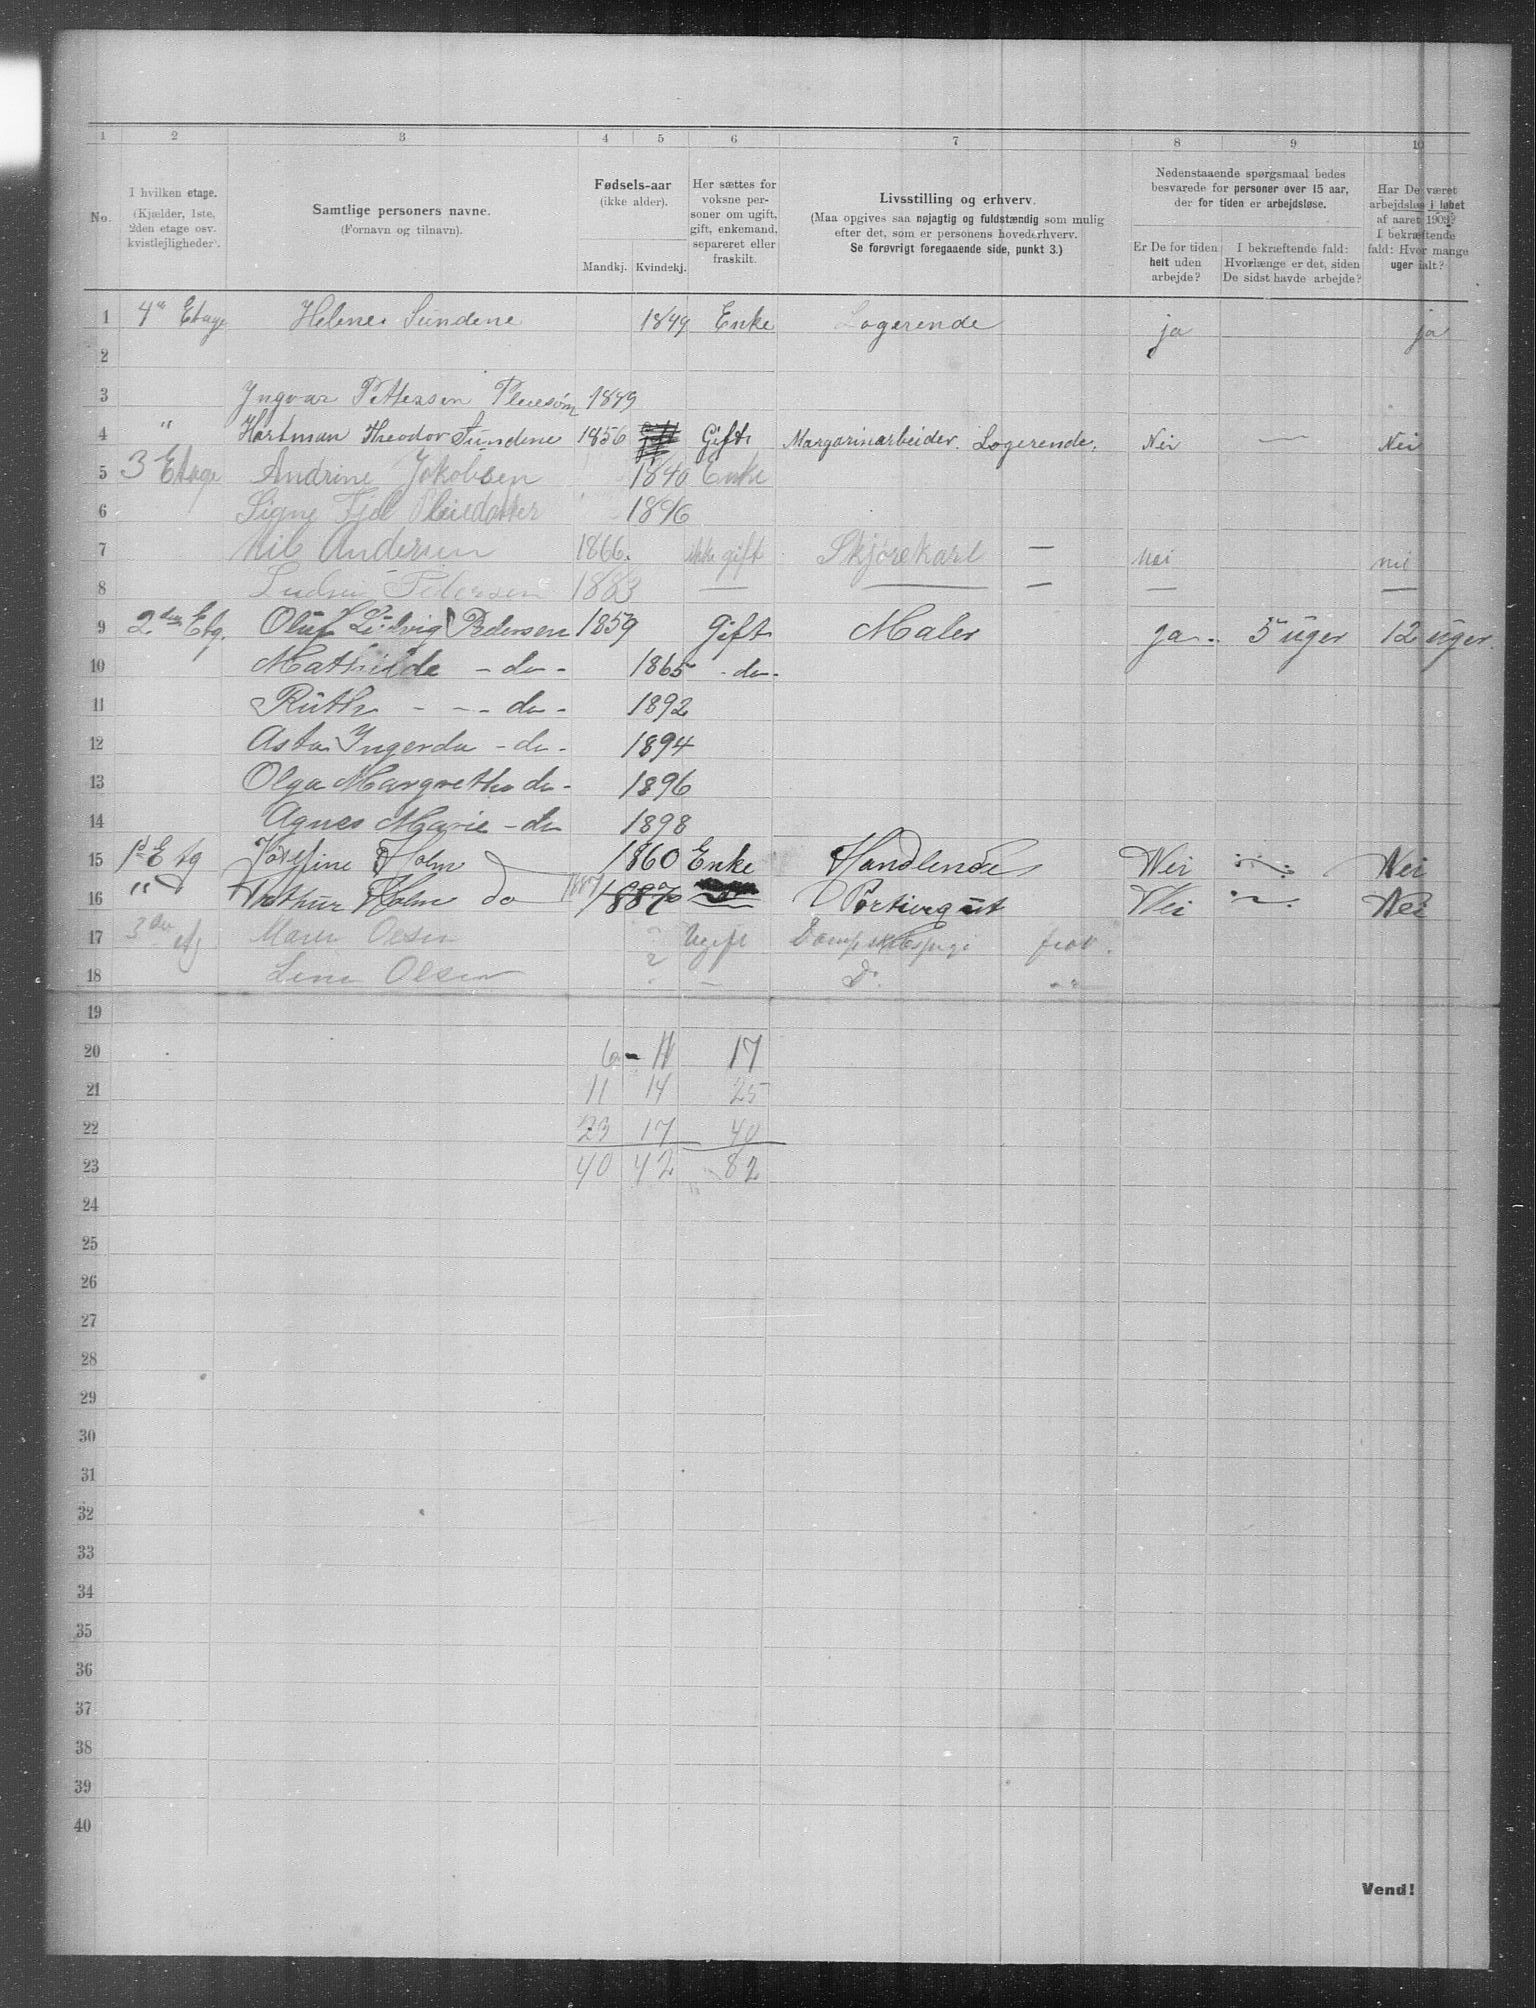 1 2 3 4 5 6 7 8 9 10
No.
I hvilken etage.
(Kjælder, 1ste,
2den etage osv.
kvistlejligheder).
Samtlige personers navne.
(Fornavn og tilnavn).
Fødsels-aar
(ikke alder).
Mandkj. Kvindekj.
Her sættes for
voksne per-
soner om ugift,
gift, enkemand,
separeret eller
fraskilt.
Livsstilling og erhverv.
(Maa opgives saa nøjagtig og fuldstændig som mulig
efter det, som er personens hovederhverv.
Se forøvrigt foregaaende side, punkt 3.)
Nedenstaaende spørgsmaal bedes
besvarede for personer over 15 aar,
der for tiden er arbejdsløse.
Er De for tiden
helt uden
arbejde?
I bekræftende fald:
Hvorlænge er det, siden
De sidst havde arbejde?
Har De været
arbejdsløs i løbet
af aaret 1903?
I bekræftende
fald: Hvor mange
uger ialt?
1 4de Etage Helene Sundene 1849 Enke Logerende ja ja
2
3 Ingvar Pettersen Pleiesøn 1899
4 " Hartman Theodor Sundene 1856 Gift Margarinarbeider. Logerende. Nei — Nei
5 3 Etage Andrine Jakobsen 1840 Enke
6 Signe Fjel Pleiedatter 1896
7 Nil Andersen 1866. ikke gift Skjørekarl — Nei nei
8 Pedersen 1883 — — — — —
9 2den Etg. Oluf Ludvig Pedersen 1859 Gift Maler ja - 5 uger 12 uger.
10 Mathilde - do - 1865 - do -
11 Ruth - - - do - 1892
12 Asta Ingerda - do - 1894
13 Olga Margrethe do - 1896
14 Agnes Marie - do 1898
15 1st Etg Josefine Holm 1860 Enke Handlende Nei Nei
16 " Arthur Holm do 1887 1887 Portiergut Nei Nei
17 3die etg Maren Olsen ? Ugift Dampskibspige frav.
18 Lina Olsen ? - Do. - "
19
20 6 - 11 17
21 11 14 25
22 23 17 40
23 40 42 82
24
25
26
27
28
29
30
31
32
33
34
35
36
37
38
39
40
Vend!